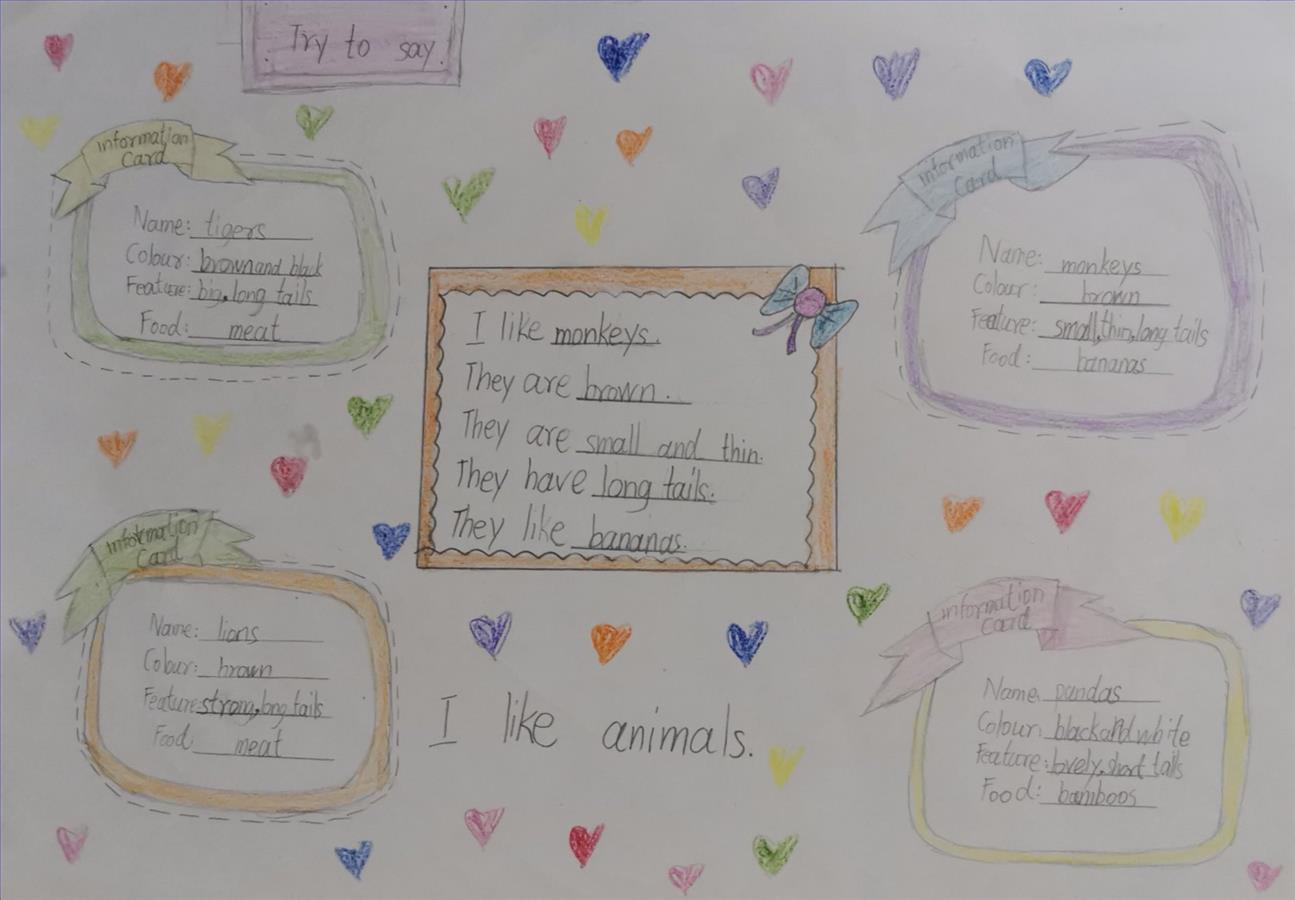 Try to say.
Information
Card
Name: tigers
Colour: brown and black
Feature: big, long tails
Food: meat
Information
Card
Name: monkeys
Colour: brown
Feature: small, thin, long tails
Food: bananas
I like monkeys.
They are brown.
They are small and thin.
They have long tails.
They like bananas.
Information
Card
Name: lions
Colour: brown
Feature: strong, long tails
Food: meat
I like animals.
Information
Card
Name: pandas
Colour: black and white
Feature: lovely, short tails
Food: bamboos